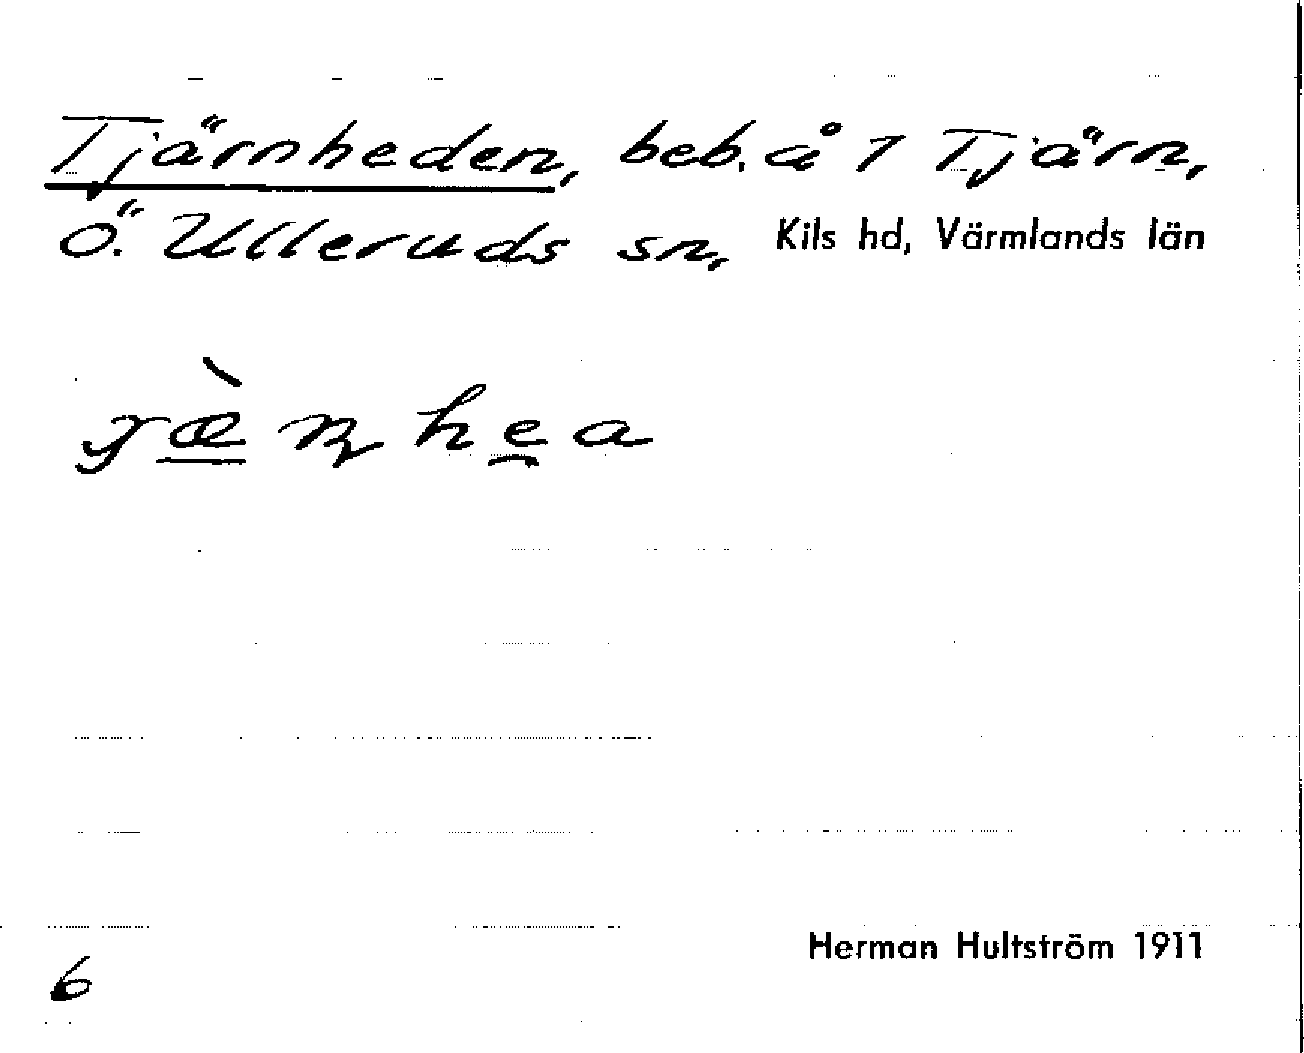 Tjärnheden, beb. å 1 Tjärn,
Ö. Ulleruds sn, Kils hd, Värmlands län
Herman Hultström 1911
6